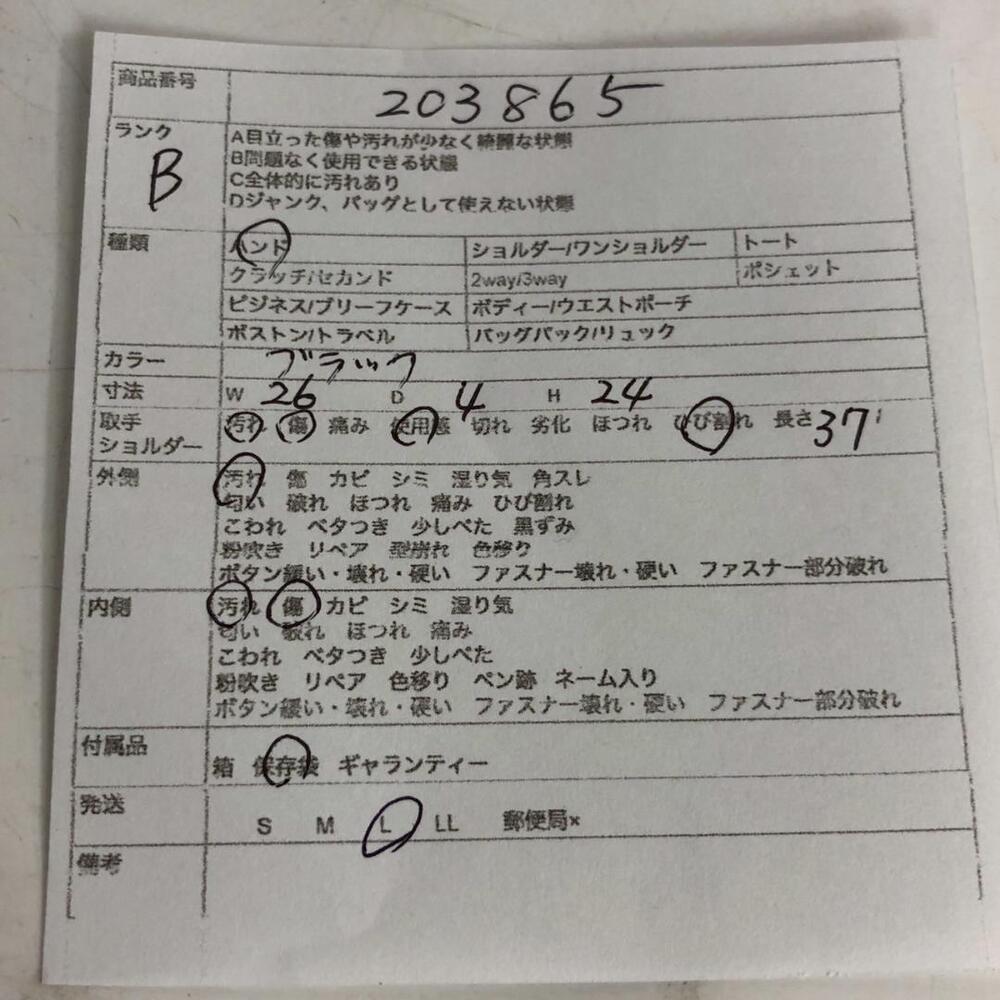 商品番号 203865
ランク B
A目立った傷や汚れが少なく綺麗な状態
B問題なく使用できる状態
C全体的に汚れあり
Dジャンク、バッグとして使えない状態
種類 ハンド ショルダー/ワンショルダー トート
クラッチ/セカンド 2way/3way ポシェット
ビジネス/ブリーフケース ボディー/ウエストポーチ
ボストン/トラベル バッグパック/リュック
カラー ブラック
寸法 W 26 D 4 H 24
取手 汚れ 傷 痛み 使用感 切れ 劣化 ほつれ ひび割れ 長さ 37
ショルダー
外側 汚れ 傷 カビ シミ 湿り気 角スレ
匂い 破れ ほつれ 痛み ひび割れ
こわれ ベタつき 少しべた 黒ずみ
粉吹き リペア 型崩れ 色移り
ボタン緩い・壊れ・硬い ファスナー壊れ・硬い ファスナー部分破れ
内側 汚れ 傷 カビ シミ 湿り気
匂い 破れ ほつれ 痛み
こわれ ベタつき 少しべた
粉吹き リペア 色移り ペン跡 ネーム入り
ボタン緩い・壊れ・硬い ファスナー壊れ・硬い ファスナー部分破れ
付属品 箱 保存袋 ギャランティー
発送 S M L LL 郵便局×
備考